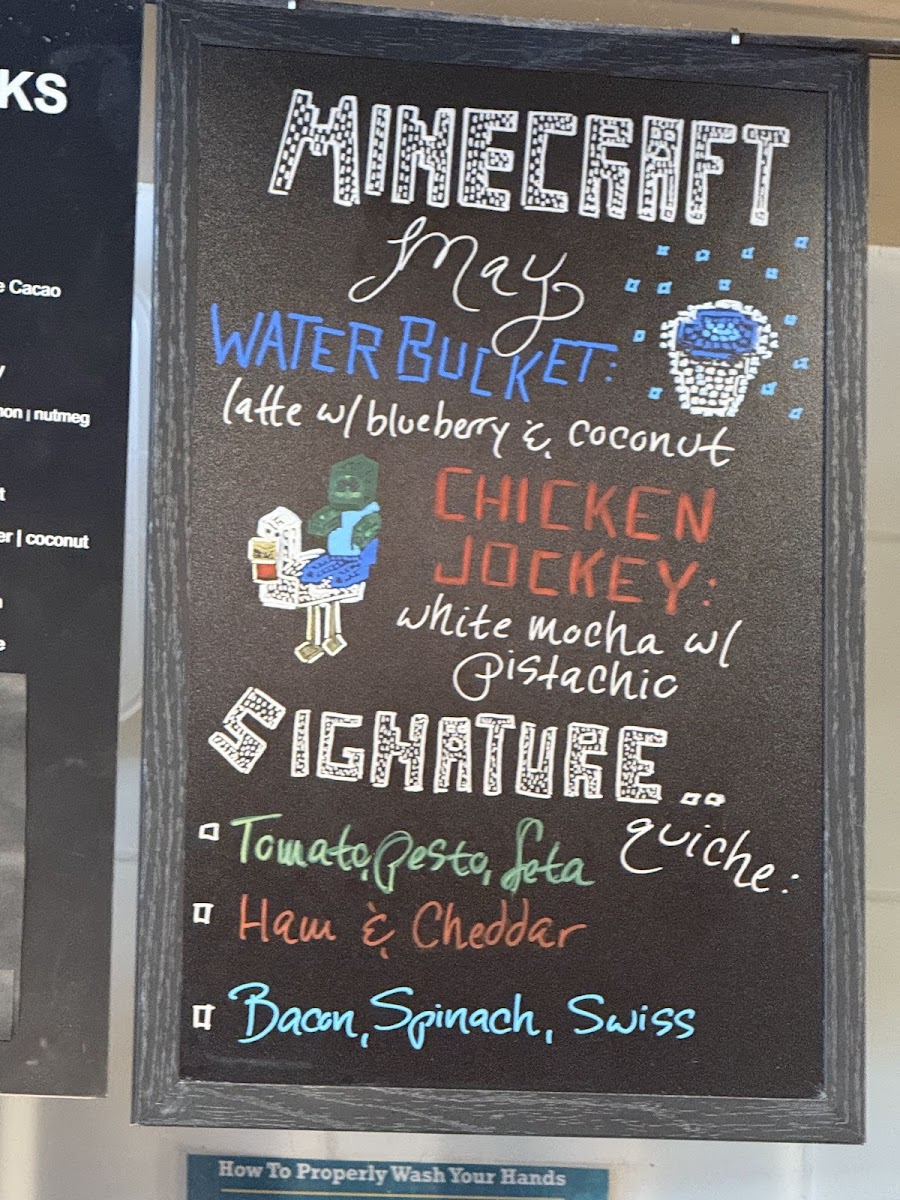 KS
e Cacao
non | nutmeg
er | coconut
MINECRAFT
May
WATER BUCKET:
latte w/ blueberry & coconut
CHICKEN
JOCKEY:
white mocha w/
pistachio
SIGNATURE..
quiche:
Tomato, pesto, feta
Ham & Cheddar
Bacon, Spinach, Swiss
How To Properly Wash Your Hands